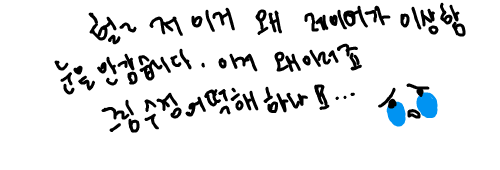 헐~ 저 이거 왜 레이어가 이상함
눈을 안감습니다. 이거 왜이러죠
그림 수정 어떡해 하나요...